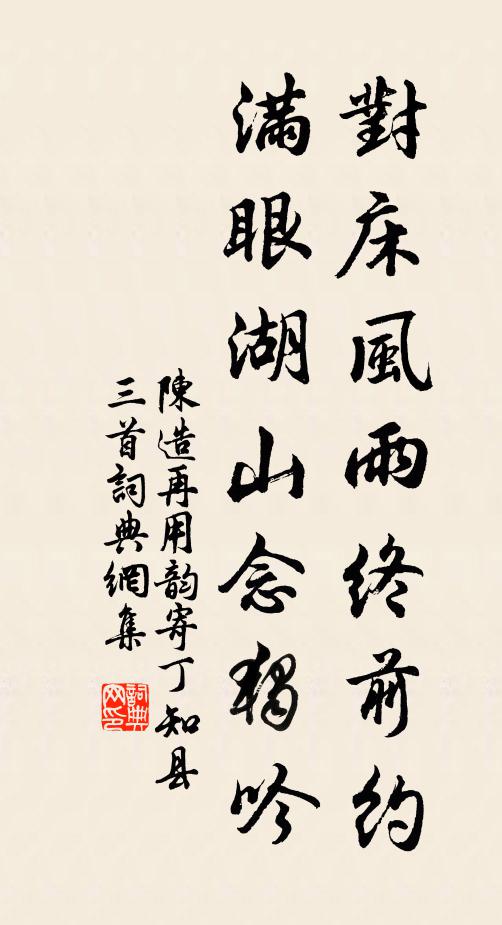 對床風雨終前約
滿眼湖山念獨吟
陳造再用韵寄丁知县
三首詞典網集
詞典网印